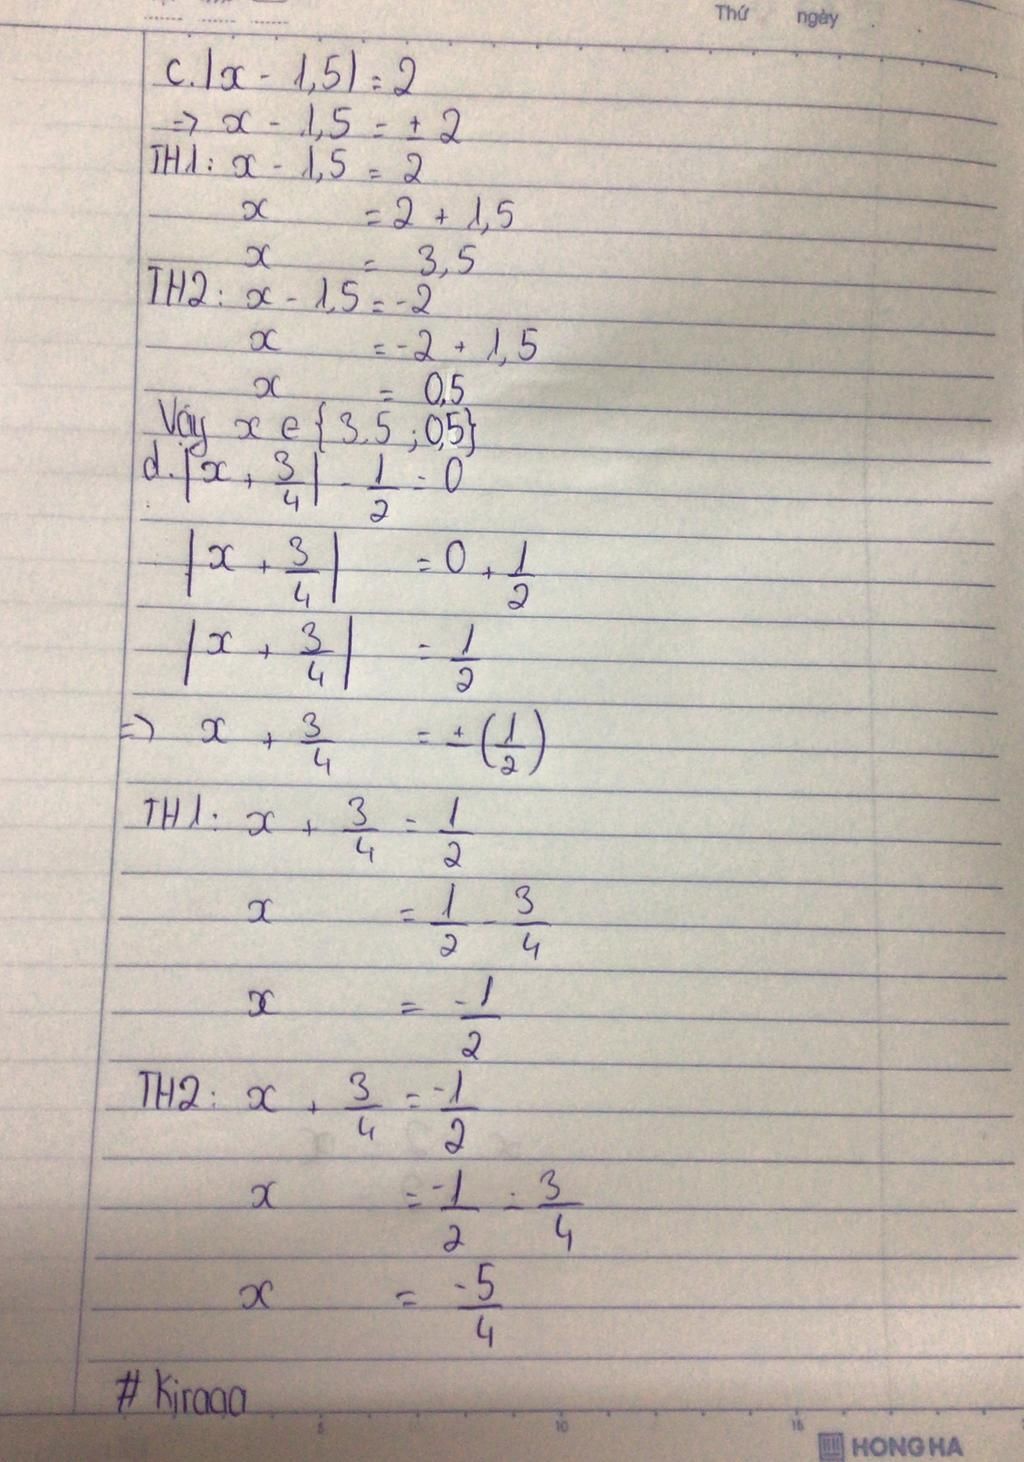 Thứ ngày
c. |x - 1,5| = 2
=> x - 1,5 = ± 2
TH1: x - 1,5 = 2
x = 2 + 1,5
x = 3,5
TH2: x - 1,5 = -2
x = -2 + 1,5
x = 0,5
Vậy x ∈ {3,5 ; 0,5}
d. |x + 3/4| - 1/2 = 0
|x + 3/4| = 0 + 1/2
|x + 3/4| = 1/2
=> x + 3/4 = ± (1/2)
TH1: x + 3/4 = 1/2
x = 1/2 - 3/4
x = -1/2
TH2: x + 3/4 = -1/2
x = -1/2 - 3/4
x = -5/4
# Kiraaa
5 10 15
HONG HA